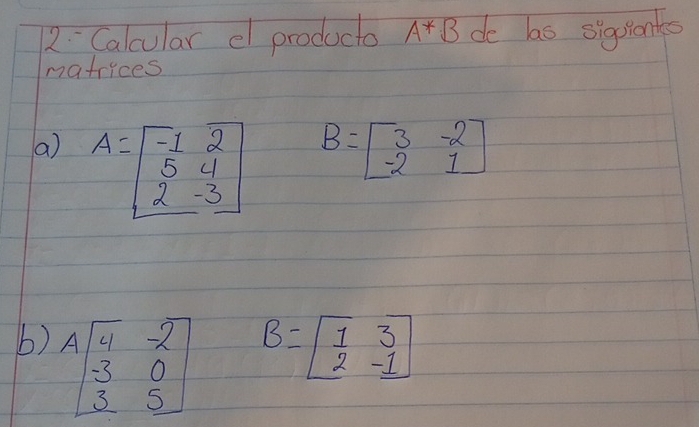 2.- Calcular el producto A*B de las siguientes
matrices
a) A = [-1 2 B = [3 -2]
5 4 -2 1
2 -3]
b) A [4 -2 B = [1 3
-3 0 2 -1]
3 5]